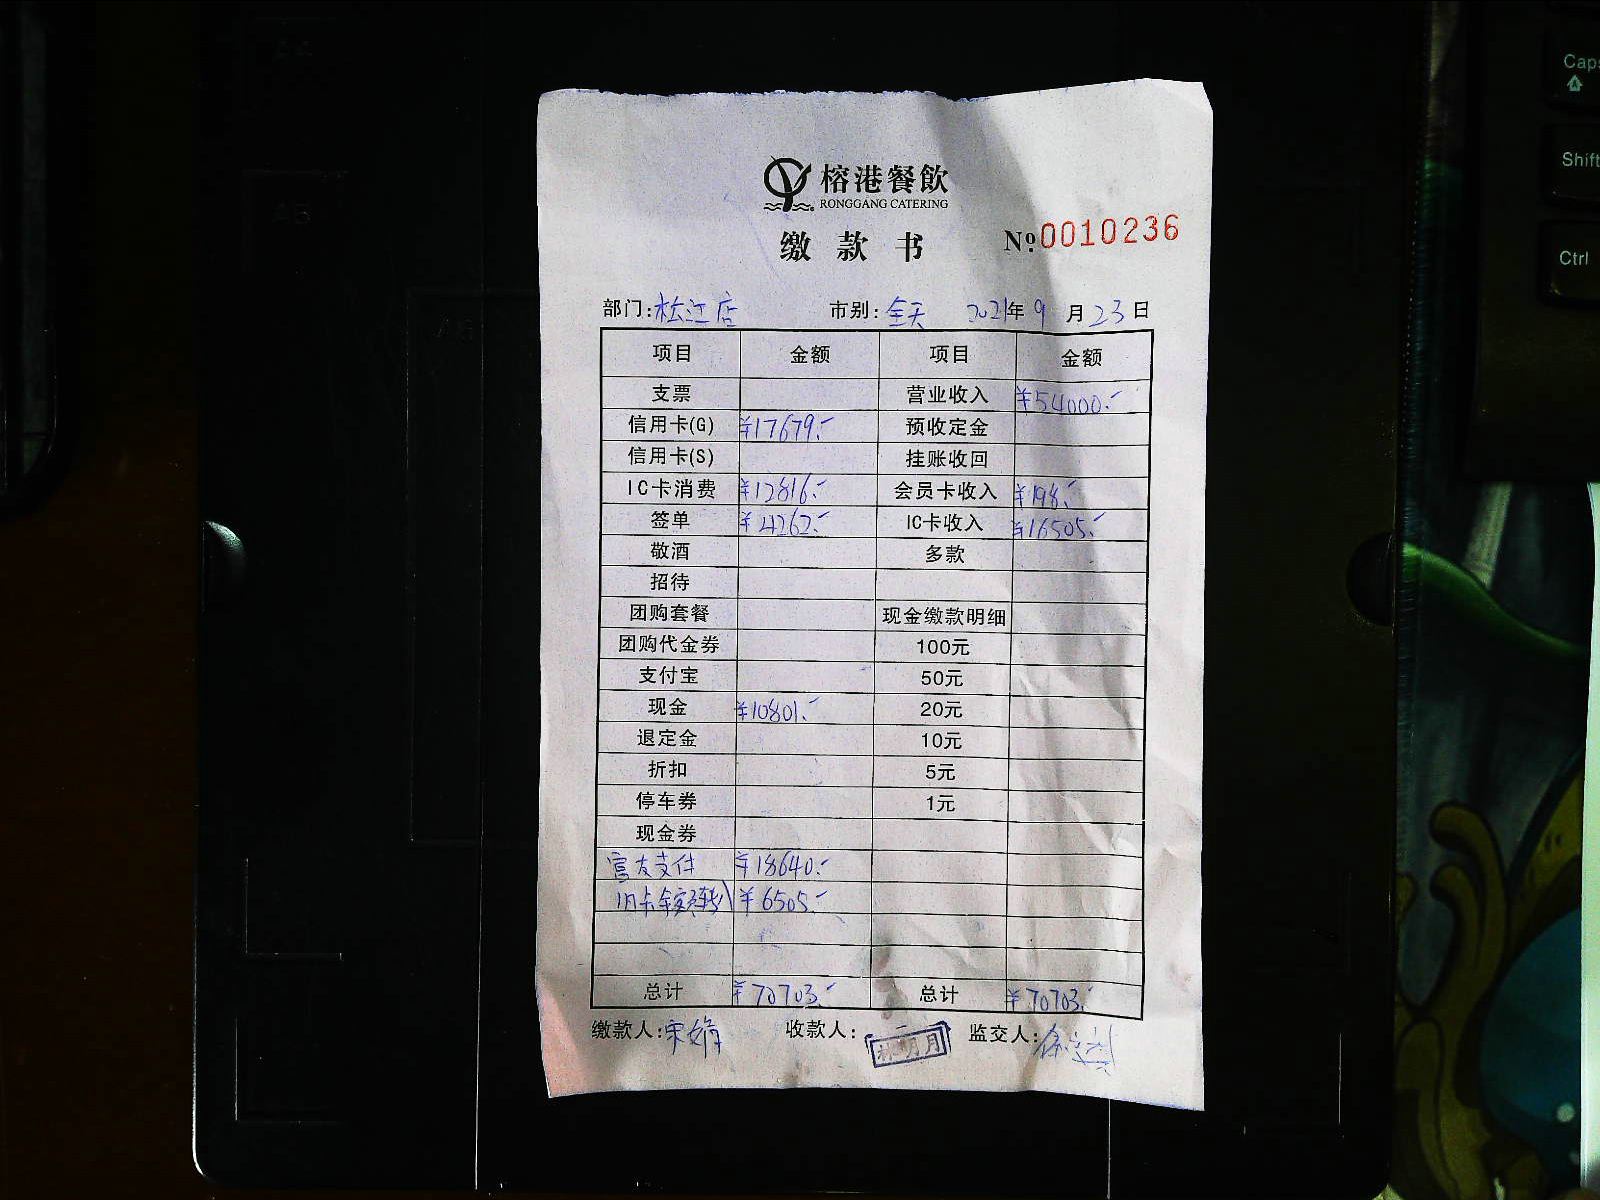 榕港餐飲
RONGGANG CATERING
缴款书 №0010236
部门:松江店 市别:全天 2021年9月23日
项目 金额 项目 金额
支票 营业收入 ¥54000.-
信用卡(G) ¥17679.- 预收定金
信用卡(S) 挂账收回
IC卡消费 ¥12816.- 会员卡收入 ¥198.-
签单 ¥4262.- IC卡收入 ¥16505.-
敬酒 多款
招待
团购套餐 现金缴款明细
团购代金券 100元
支付宝 50元
现金 ¥10801.- 20元
退定金 10元
折扣 5元
停车券 1元
现金券
富友支付 ¥18640.-
旧卡余额转入 ¥6505.-
总计 ¥70703.- 总计 ¥70703.-
缴款人:宋娟 收款人: 林明月 监交人:
Caps
Shift
Ctrl
A5